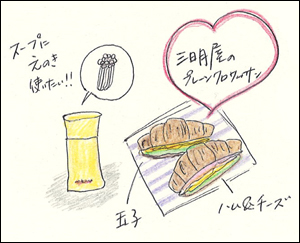 スープに
えのき
使いたい!!
三日月屋の
プレーンクロワッサン
玉子
ハム&チーズ